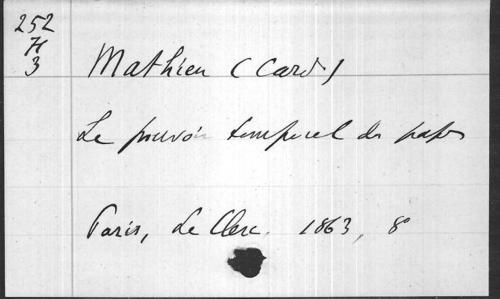 252
H
3
Mathieu (Card)
Le pouvoir temporel des papes
Paris, Le Clerc. 1863, 8°